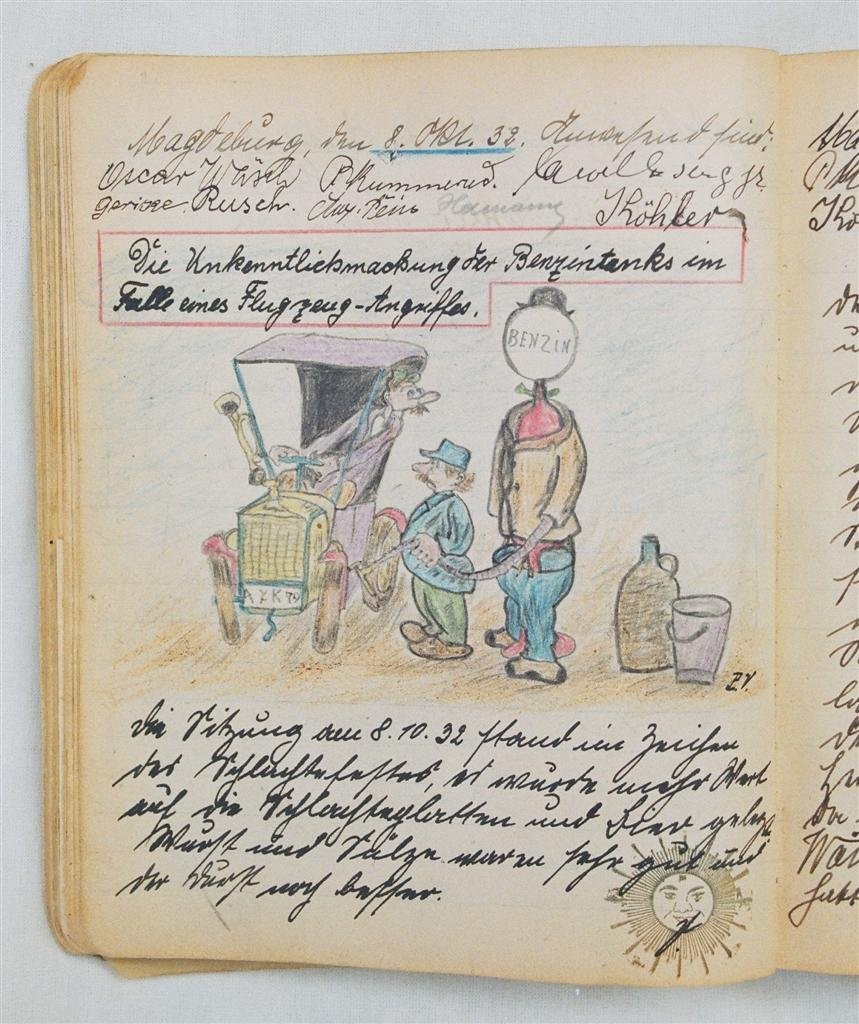 Magdeburg, den 8. Okt. 32. Anwesend sind:
Oscar P. Kummered.
Rusch. Köhler
Die Unkenntlichmachung der Benzintanks im
Falle eines Flugzeug-Angriffes.
BENZIN
AXK 79
P.V.
Die Sitzung am 8.10.32 stand im Zeichen
des Schlachtefestes, es wurde mehr Wert
auf die Schlachteplatten und Bier gelegt,
Wurst und Sülze waren sehr gut und
der Durst noch besser.